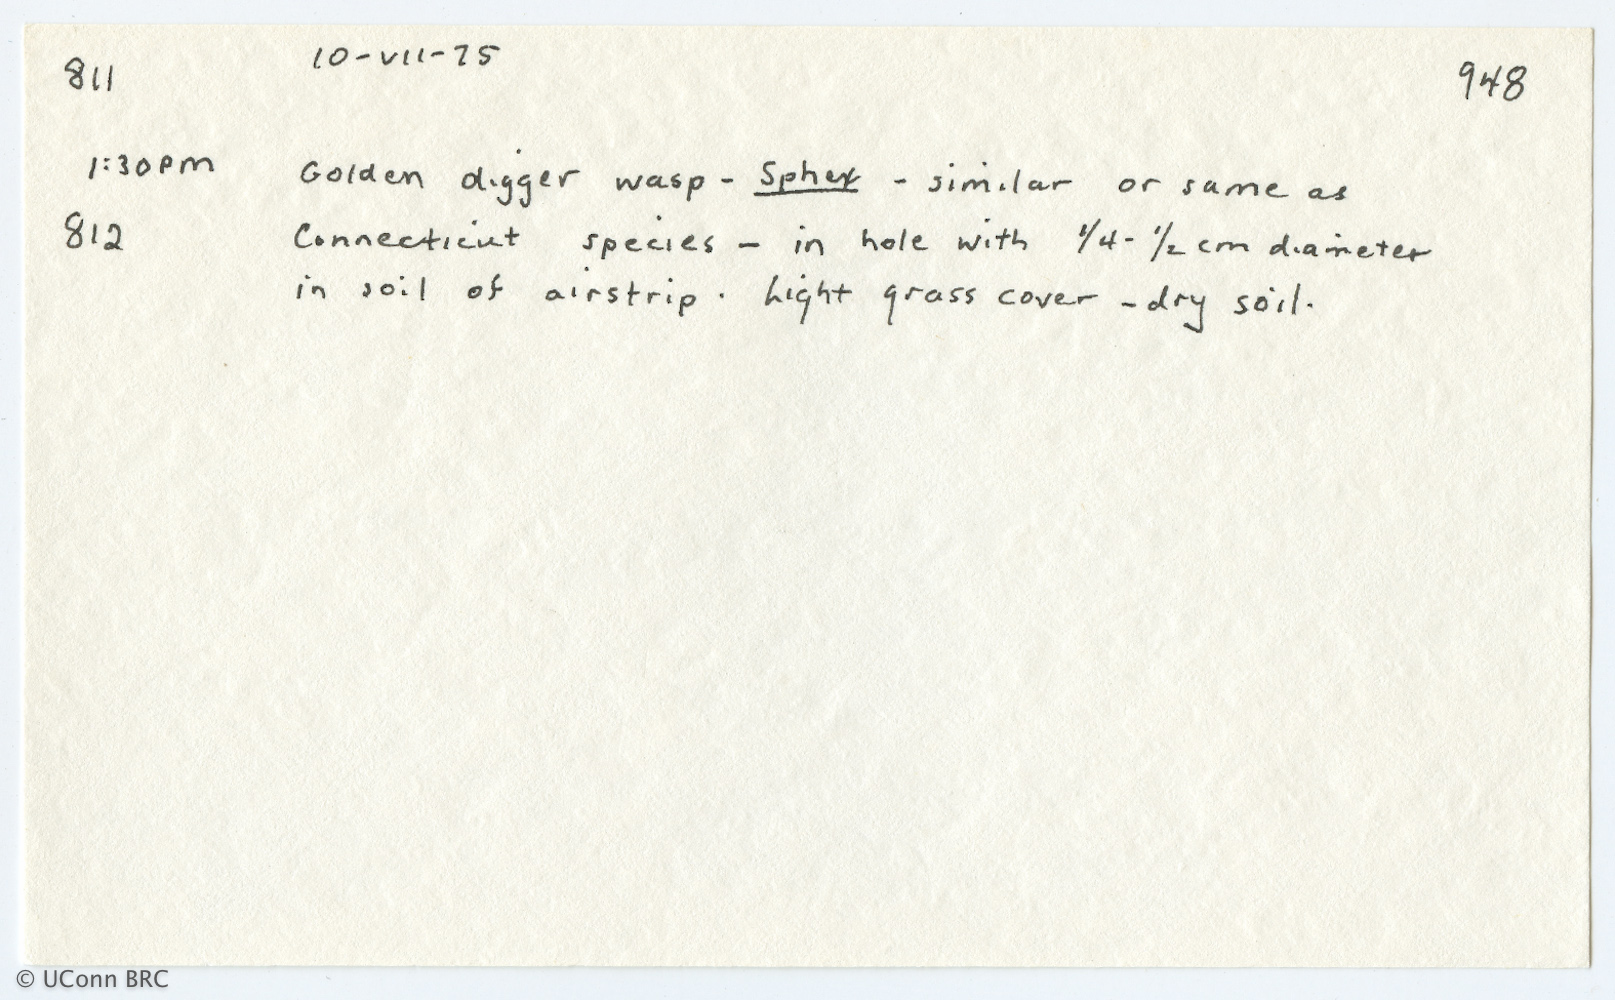 811 10-VII-75 948
1:30PM Golden digger wasp - Sphex - similar or same as
812 Connecticut species - in hole with 1/4 - 1/2 cm diameter
in soil of airstrip. Light grass cover - dry soil.
© UConn BRC